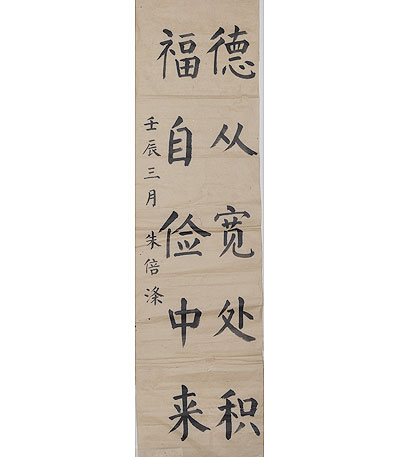 德从宽处积
福自俭中来
壬辰三月 朱倍滌